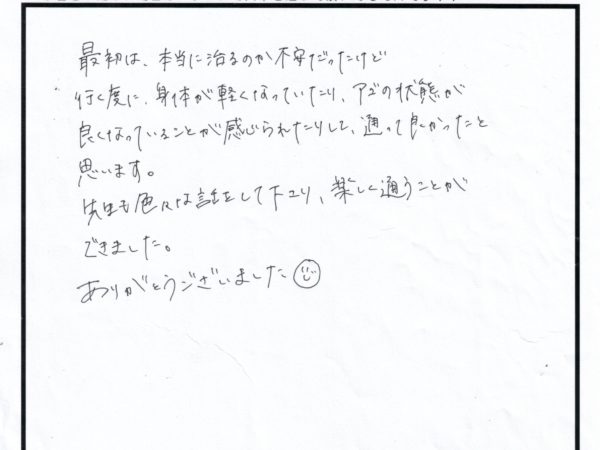 最初は、本当に治るのか不安だったけど
行く度に、身体が軽くなっていたり、アゴの状態が
良くなっていることが感じられたりして、通って良かったと
思います。
先生も色々な話をして下さり、楽しく通うことが
できました。
ありがとうございました